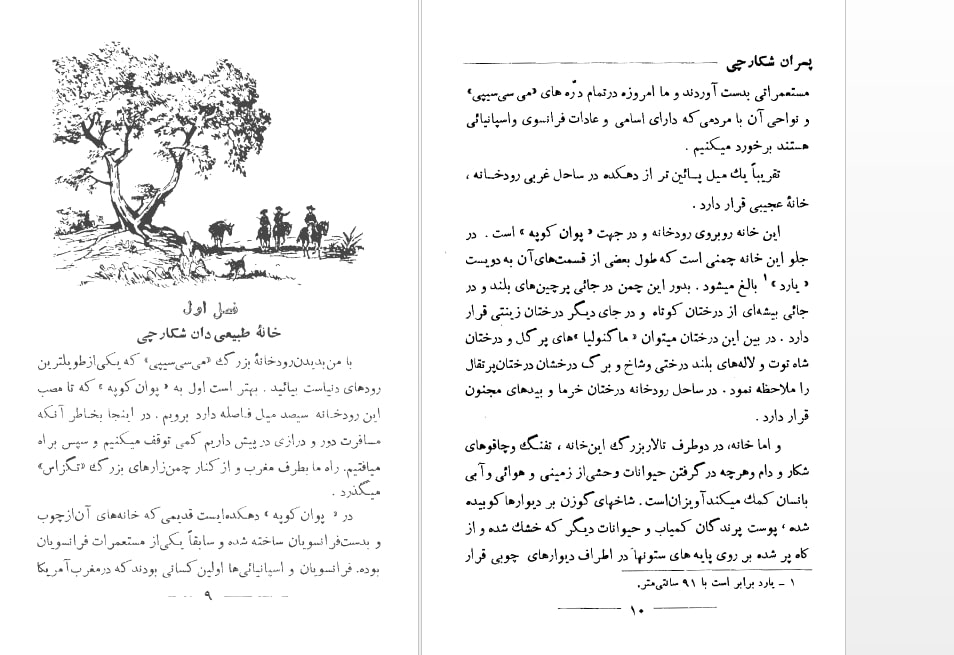 فصل اول
خانهٔ طبیعی دان شکارچی
با من بدیدن رودخانهٔ بزرگ «می‌سی‌سیپی» که یکی از طویلترین
رودهای دنیاست بیائید . بهتر است اول به «پوان کوپه» که تا مصب
این رودخانه سیصد میل فاصله دارد برویم . در اینجا بخاطر آنکه
مسافرت دور و درازی در پیش داریم کمی توقف میکنیم و سپس براه
میافتیم. راه ما بطرف مغرب و از کنار چمن‌زارهای بزرگ «تگزاس»
میگذرد .
در « پوان کوپه » دهکده‌ایست قدیمی که خانه‌های آن ازچوب
و بدست فرانسویان ساخته شده و سابقاً یکی از مستعمرات فرانسویان
بوده. فرانسویان و اسپانیائی‌ها اولین کسانی بودند که درمغرب آمریکا
۹
پسران شکارچی
مستعمراتی بدست آوردند و ما امروزه درتمام درّه های «می سی‌سیپی»
و نواحی آن با مردمی که دارای اسامی و عادات فرانسوی واسپانیائی
هستند برخورد میکنیم .
تقریباً یك میل پائین تر از دهکده در ساحل غربی رودخانه ،
خانهٔ عجیبی قرار دارد .
این خانه روبروی رودخانه و در جهت « پوان کوپه » است . در
جلو این خانه چمنی است که طول بعضی از قسمت‌های آن به دویست
« یارد »۱ بالغ میشود . بدور این چمن در جائی پرچین‌های بلند و در
جائی بیشه‌ای از درختان کوتاه و در جای دیگر درختان زینتی قرار
دارد . در بین این درختان میتوان «ماگنولیا »های پر گل و درختان
شاه توت و لاله‌های بلند درختی وشاخ و برگ درخشان درختان پرتقال
را ملاحظه نمود . در ساحل رودخانه درختان خرما و بیدهای مجنون
قرار دارد .
و اما خانه، در دوطرف تالار بزرگ این خانه ، تفنگ وچاقوهای
شکار و دام وهرچه در گرفتن حیوانات وحشی از زمینی و هوائی و آبی
بانسان کمك میکند آویزان است . شاخهای گوزن بر دیوارها کوبیده
شده ، پوست پرندگان کمیاب و حیوانات دیگر که خشك شده و از
کاه پر شده بر روی پایه های ستونها در اطراف دیوارهای چوبی قرار
۱ - یارد برابر است با ۹۱ سانتی‌متر.
۱۰